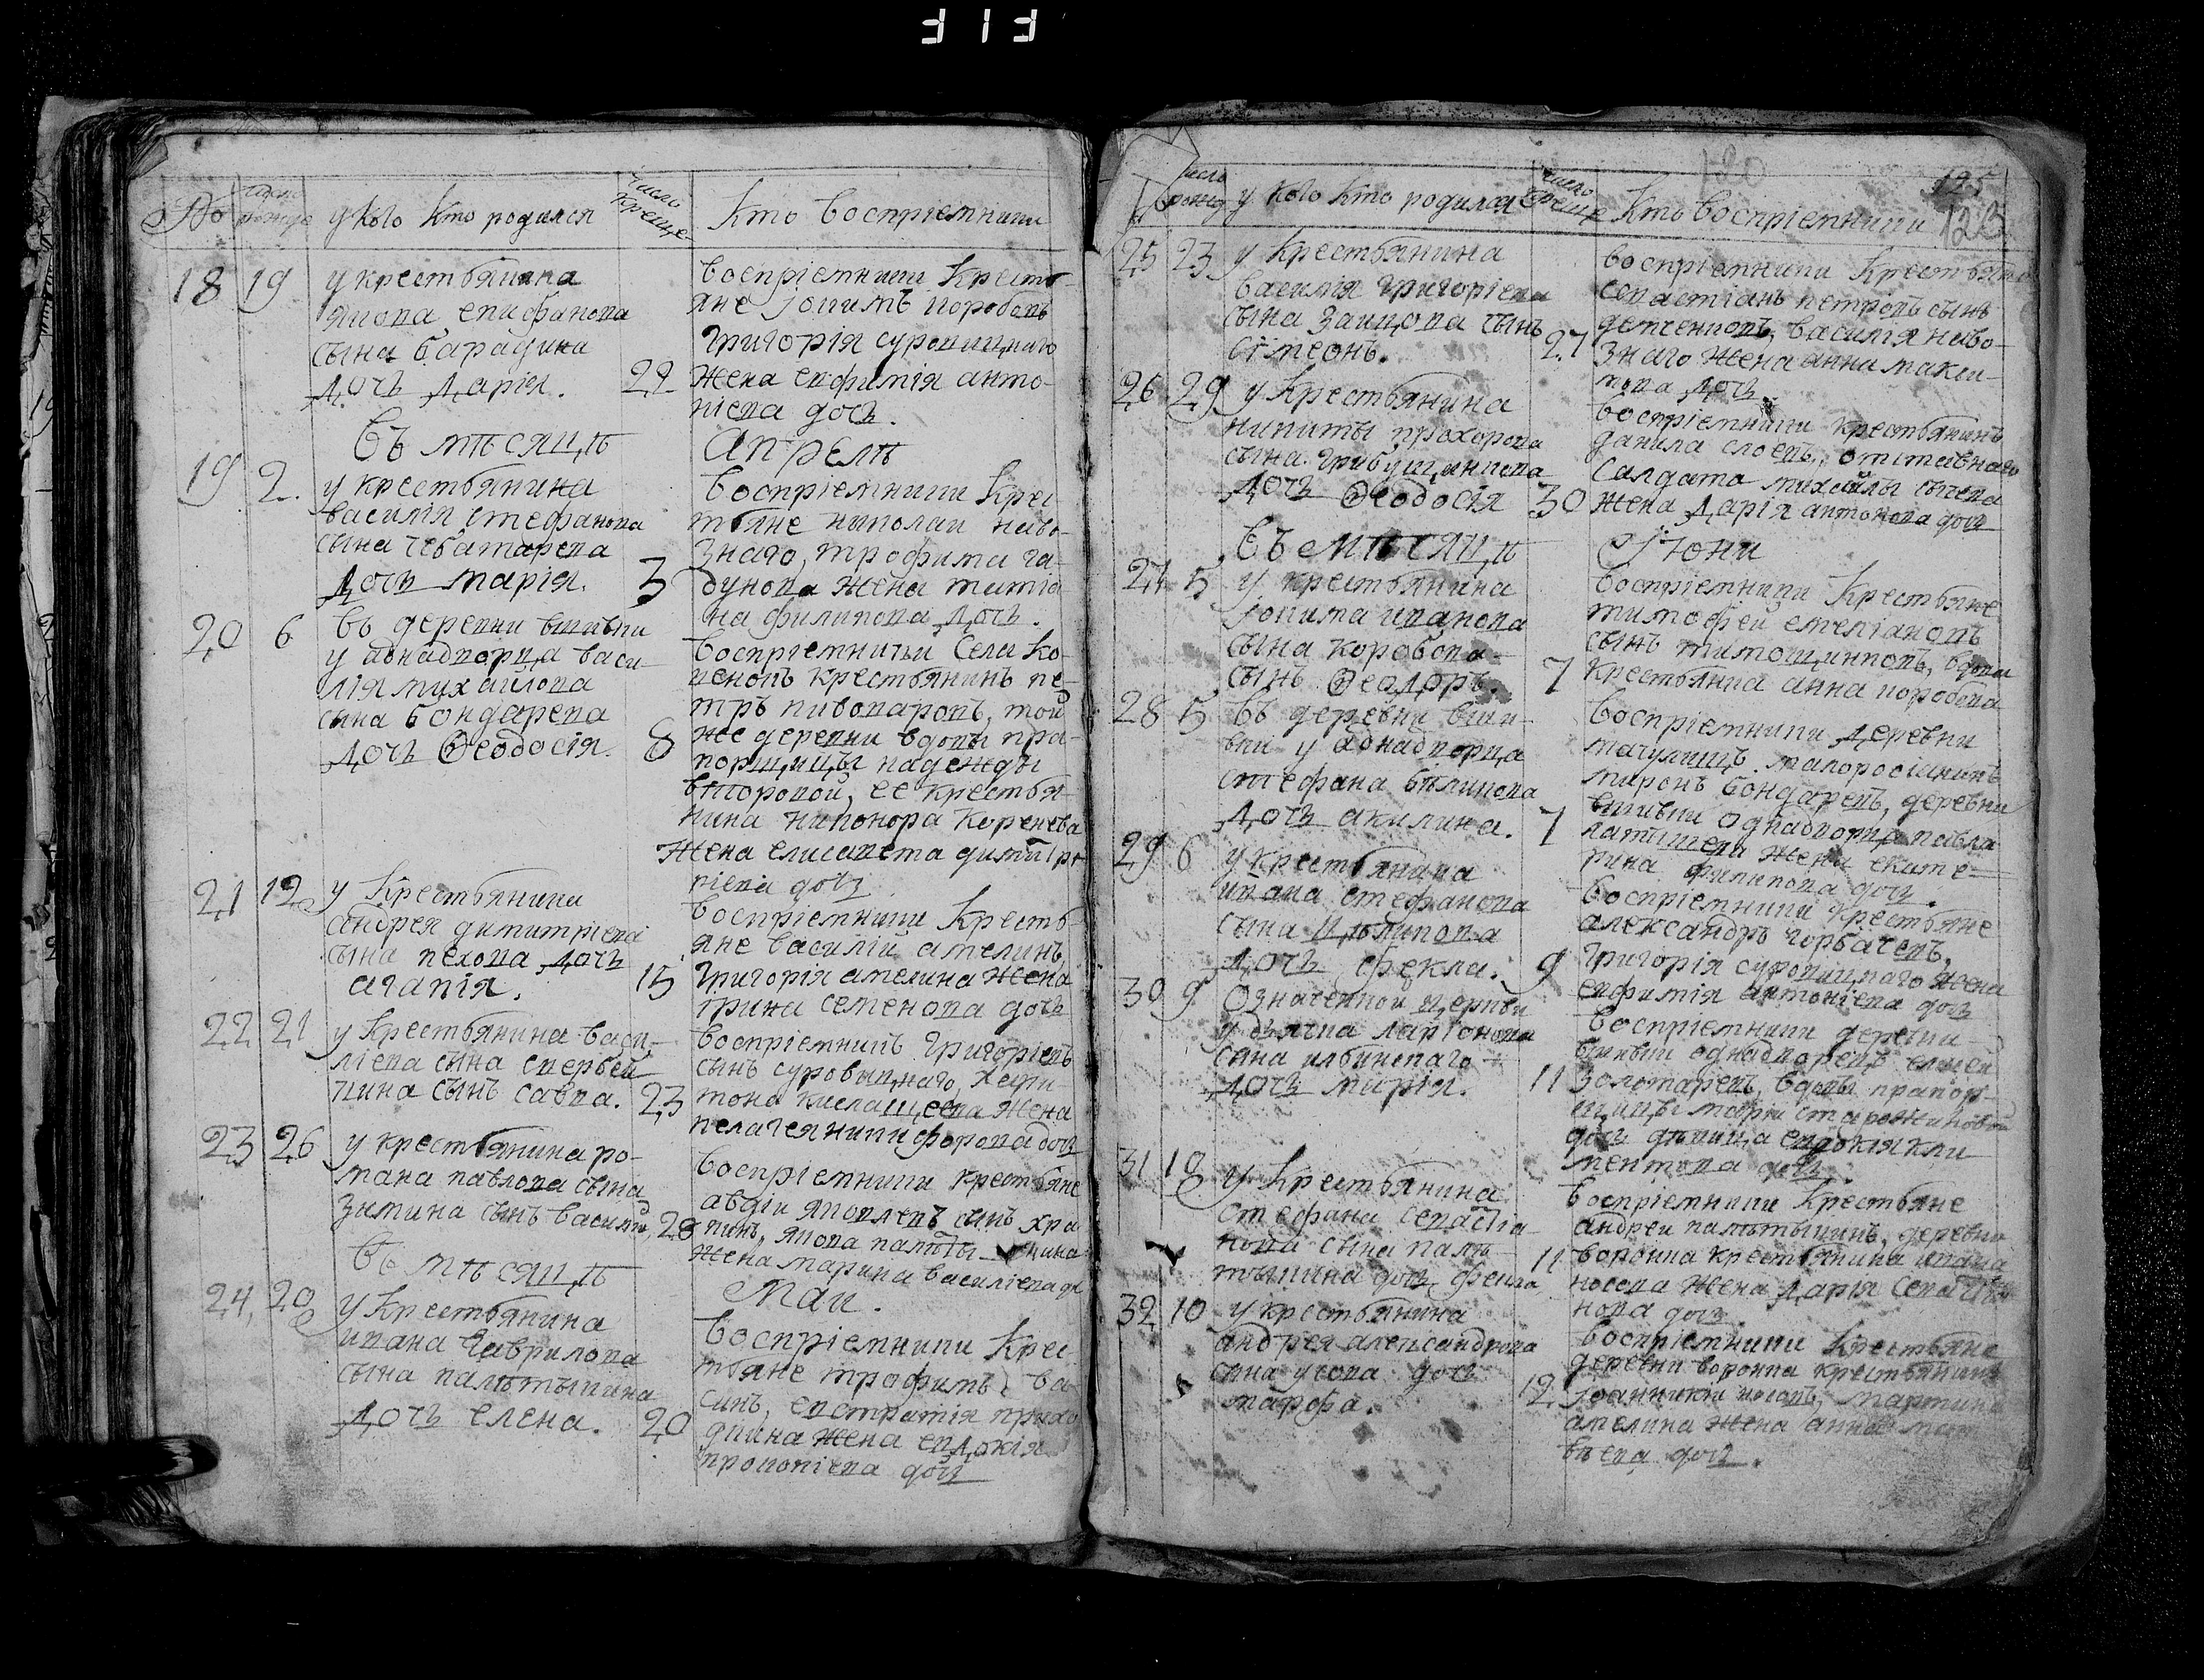 313
№
число рожде
у кого кто родился
число креще
кто воспріемники
18 19 у крестьянина
якова епифанова
сына барадина
дочь дарія.
22
воспріемники кресть-
яне іоакимъ коробовъ
григорія суровицкаго
жена евфимія анто-
ніева дочь.
въ мѣсяцѣ
апрелѣ
19 2. у крестьянина
василія стефанова
сына чеботарева
дочь марія.
3
воспріемники крес
тьяне николай наво-
знаго, трофима га-
дунова жена татіа
на филипова дочь.
20 6 въ деревни вшивки
у аднадворца васи-
лія михаилова
сына бондарева
дочь Ѳеодосія.
8
воспріемники села ко-
ренокъ крестьянинъ пе-
тръ пивоваровъ, той
же деревни вдовы пра-
порщицы надежды
второвой, ее крестья-
нина никонора коренева
жена елисавета димитр
ріева дочь
21 12 у крестьянина
андрея димитріева
сына пехова дочь
агапія.
15
воспріемники кресть-
яне василій амелинъ,
григорія амелина жена
ірина семенова дочь
22 21 у крестьянина васи-
ліева сына скербей
нина сынъ савва.
23
воспріемникъ григоріевъ
сынъ суровицкаго, хари-
тона кислащеева жена
пелагея никифорова дочь
23 26 у крестьянина ро-
мана павлова сына
зимина сынъ василій,
28
воспріемники крестьяне
авдіи яковлевъ сынъ хра
пинъ, якова палѣты-кина
жена марина василіева до
въ мѣсяцѣ
маи.
24, 20 у крестьянина
ивана гаврилова
сына палѣтыкина
дочь елена.
20
воспріемники крес
тьяне трофимъ ва
синъ, евстратія прихо
дкина жена евдокія
прокопіева дочь
число рожд у кого кто родился
число креще кто воспріемники
120
125
123
25 23 у крестьянина
василія григоріева
сына заицова сынъ
сімеонъ.
27
воспріемники крестьяне
севастіанъ петровъ сынъ
демченковъ, василія наво-
знаго жена анна макси-
мова дочь.
26 29 у крестьянина
никиты прохорова
сына грибущенкова
дочь Ѳеодосія
30
воспріемники крестьянинъ
данила слоевъ, отставнаго
салдата михайлы сычева
жена дарія антонова дочь
въ мѣсяцѣ
Іюни
27 5 у крестьянина
іокима иванова
сына коробова
сынъ Ѳеодоръ.
7
воспріемники крестьяне
тимофей емеліановъ
сынъ тимощинковъ, вдова
крестьянка анна коробова
28 5 въ деревни вши-
вки у аднадворца
стефана бѣликова
дочь акилина.
7
воспріемники деревни
мачулищъ малоросіянинъ
миронъ бондаревъ, деревни
вшивки однадворца павла
латышева жена екате-
рина филипова дочь.
29 6 у крестьянина
ивана стефанова
сына цѣликова
дочь фекла.
9
воспріемники крестьяне
александръ горбачевъ,
григорія суровицкаго жена
евфимія антоніева дочь
30 9 означенной церкви
у дьячка ларіонова
сына илбинскаго
дочь марія.
11
воспріемники деревни
вшивки однадворецъ елисей
золотаревъ, вдовы прапор-
щицы маріи старожиковой
дочь дѣвица евдокія кли
ментова дочь.
31 18 у крестьянина
стефана севастіа-
нова сына палѣ-
тыкина дочь фекла
11
воспріемники крестьяне
андрей палѣтыкинъ, деревни
воронка крестьянина ивана
носова жена дарія севастіа
нова дочь
32 10 у крестьянина
андрея александрова
сына усова дочь
марфа.
12
воспріемники крестьяне
деревни воронка крестьянинъ
іоанникій носовъ, мартина
амелина жена анна мат
вѣева дочь.